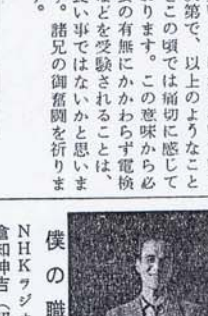 第で、以上のようなこと
をこの頃では痛切に感じて
ります。この意味から必
の有無にかかわらず電検
などを受験されることは、
良い事ではないかと思いま
。諸兄の御奮闘を祈りま
。
僕の職
NHKラジオ
倉知紳吉